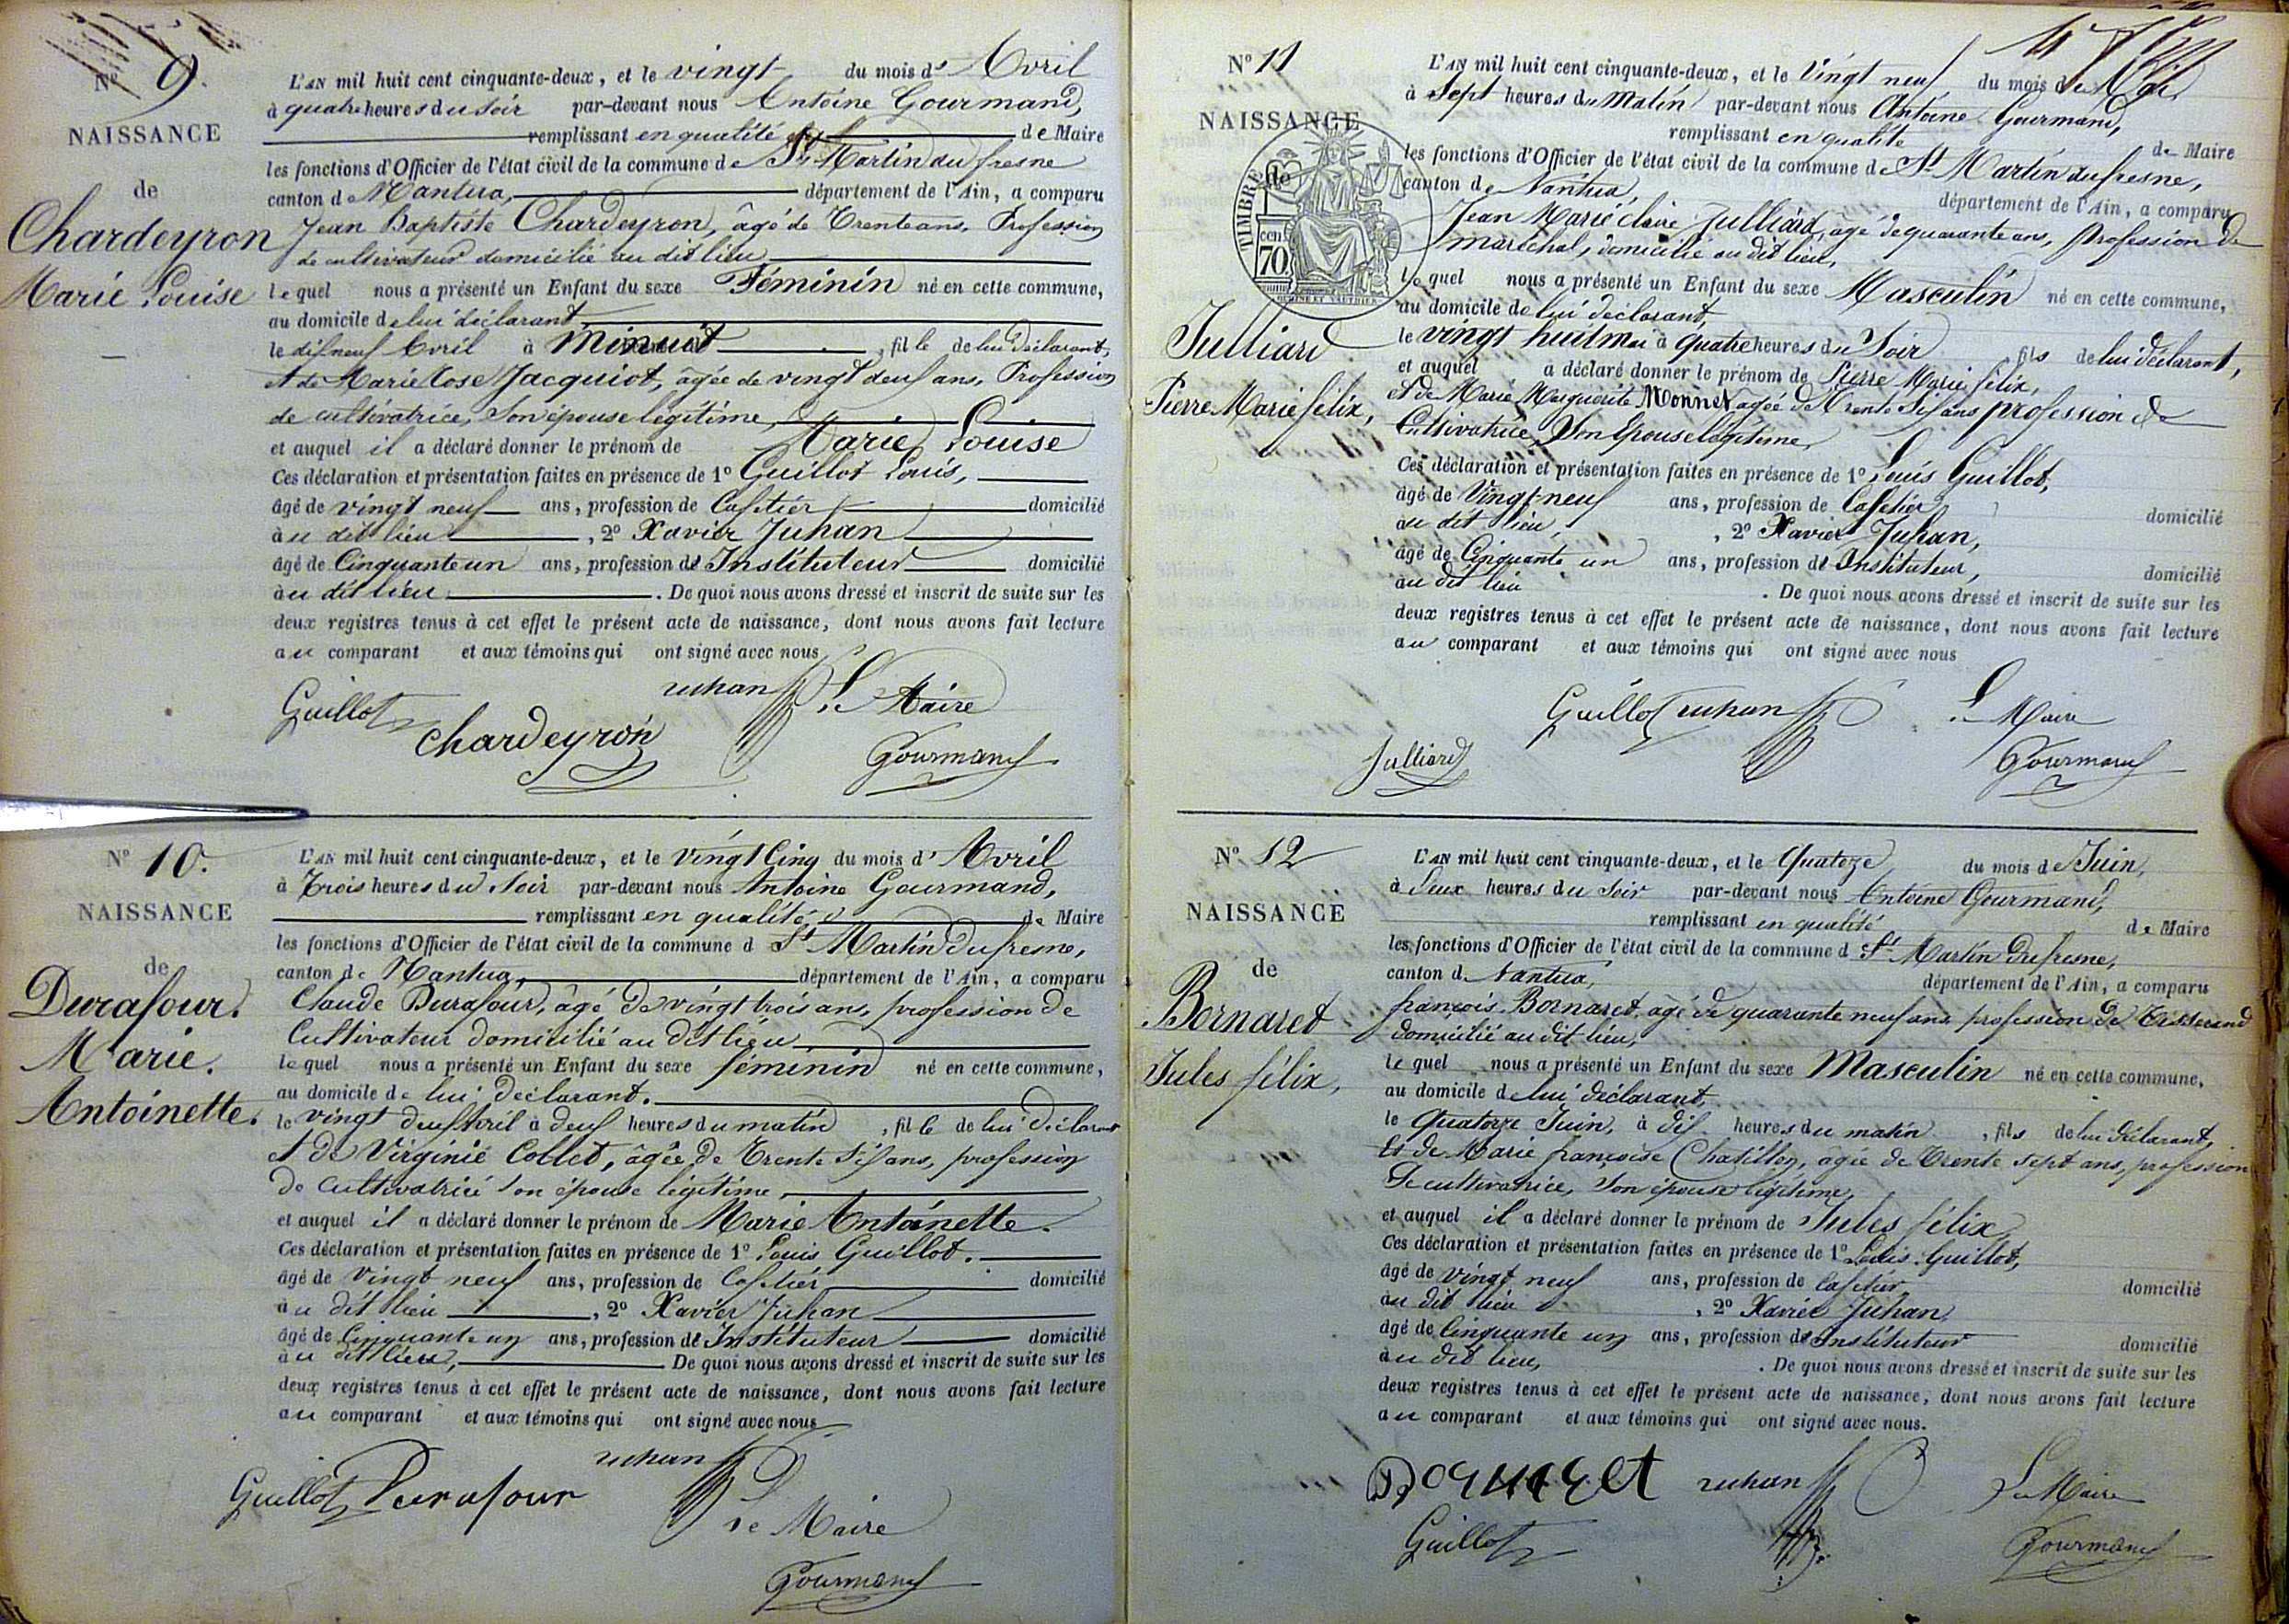 Nº 9.
NAISSANCE
de
Chardeyron
Marie Louise
L'AN mil huit cent cinquante-deux, et le vingt du mois d' Avril
à quatre heures du soir par-devant nous Antoine Gourmand,
remplissant en qualité de Maire
les fonctions d'Officier de l'état civil de la commune de St Martin du fresne
canton de Nantua, département de l'Ain, a comparu
Jean Baptiste Chardeyron, âgé de Trente ans, Profession
de cultivateur domicilié au dit lieu
le quel nous a présenté un Enfant du sexe Féminin né en cette commune,
au domicile de lui déclarant
le dix neuf Avril à Minuit, fille de lui déclarant,
et de Marie Rose Jacquiot, âgée de vingt deux ans, Profession
de cultivatrice, Son épouse légitime,
et auquel il a déclaré donner le prénom de Marie Louise
Ces déclaration et présentation faites en présence de 1º Guillot Louis,
âgé de vingt neuf ans, profession de Cafetier domicilié
au dit lieu, 2º Xavier Juhan
âgé de Cinquante un ans, profession d' Instituteur domicilié
au dit lieu. De quoi nous avons dressé et inscrit de suite sur les
deux registres tenus à cet effet le présent acte de naissance, dont nous avons fait lecture
au comparant et aux témoins qui ont signé avec nous
Guillot Juhan Le Maire
Chardeyron Gourmand
Nº 10.
NAISSANCE
de
Durafour.
Marie.
Antoinette.
L'AN mil huit cent cinquante-deux, et le Vingt Cinq du mois d' Avril
à Trois heures du Soir par-devant nous Antoine Gourmand,
remplissant en qualité de Maire
les fonctions d'Officier de l'état civil de la commune d St Martin Dufresne,
canton de Nantua, département de l'Ain, a comparu
Claude Durafour, âgé de vingt trois ans, profession de
Cultivateur domicilié au dit lieu
le quel nous a présenté un Enfant du sexe féminin né en cette commune,
au domicile de lui déclarant.
le vingt deux Avril à deux heures du matin, fille de lui déclarant
et de Virginie Collet, âgée de Trente Six ans, profession
de cultivatrice son épouse légitime,
et auquel il a déclaré donner le prénom de Marie Antoinette.
Ces déclaration et présentation faites en présence de 1º Louis Guillot.
âgé de Vingt neuf ans, profession de Cafetier domicilié
au dit lieu, 2º Xavier Juhan
âgé de Cinquante un ans, profession d' Instituteur domicilié
au dit lieu, De quoi nous avons dressé et inscrit de suite sur les
deux registres tenus à cet effet le présent acte de naissance, dont nous avons fait lecture
au comparant et aux témoins qui ont signé avec nous
Juhan
Guillot Durafour Le Maire
Gourmand
Nº 11
NAISSANCE
de
TIMBRE
70 cen.
Julliard
Pierre Marie félix,
L'AN mil huit cent cinquante-deux, et le Vingt neuf du mois de Mai
à Sept heures du Matin par-devant nous Antoine Gourmand,
remplissant en qualité de Maire
les fonctions d'Officier de l'état civil de la commune de St Martin dufresne,
canton de Nantua, département de l'Ain, a comparu
Jean Marie Claire Julliard, âgé de quarante ans, Profession de
maréchal, domicilié au dit lieu,
le quel nous a présenté un Enfant du sexe Masculin né en cette commune,
au domicile de lui déclarant,
le vingt huit mai à quatre heures du Soir, fils de lui déclarant,
et auquel a déclaré donner le prénom de Pierre Marie félix,
et de Marie Marguerite Monnet agée de Trente Six ans profession de
Cultivatrice, Son épouse légitime,
Ces déclaration et présentation faites en présence de 1º Louis Guillot,
âgé de Vingt-neuf ans, profession de Cafetier domicilié
au dit lieu, 2º Xavier Juhan,
âgé de Cinquante un ans, profession d' Instituteur, domicilié
au dit lieu. De quoi nous avons dressé et inscrit de suite sur les
deux registres tenus à cet effet le présent acte de naissance, dont nous avons fait lecture
au comparant et aux témoins qui ont signé avec nous
Guillot Juhan Le Maire
Julliard Gourmand
Nº 12
NAISSANCE
de
Bornaret
Jules félix,
L'AN mil huit cent cinquante-deux, et le Quatorze du mois de Juin,
à Deux heures du Soir par-devant nous Antoine Gourmand,
remplissant en qualité de Maire
les fonctions d'Officier de l'état civil de la commune d St Martin Dufresne,
canton d. Nantua, département de l'Ain, a comparu
françois Bornaret, agé de quarante neuf ans profession de Tisserand
domicilié au dit lieu,
le quel nous a présenté un Enfant du sexe Masculin né en cette commune,
au domicile de lui déclarant,
le Quatorze Juin, à dix heures du matin, fils de lui déclarant,
Et de Marie françoise Chatillon, agée de Trente sept ans, profession
De cultivatrice, Son épouse légitime,
et auquel il a déclaré donner le prénom de Jules félix,
Ces déclaration et présentation faites en présence de 1º Louis Guillot,
âgé de vingt neuf ans, profession de Cafetier, domicilié
au dit lieu, 2º Xavier Juhan,
âgé de Cinquante un ans, profession d' Instituteur domicilié
au dit lieu, . De quoi nous avons dressé et inscrit de suite sur les
deux registres tenus à cet effet le présent acte de naissance, dont nous avons fait lecture
au comparant et aux témoins qui ont signé avec nous.
Bornaret Juhan Le Maire
Guillot Gourmand